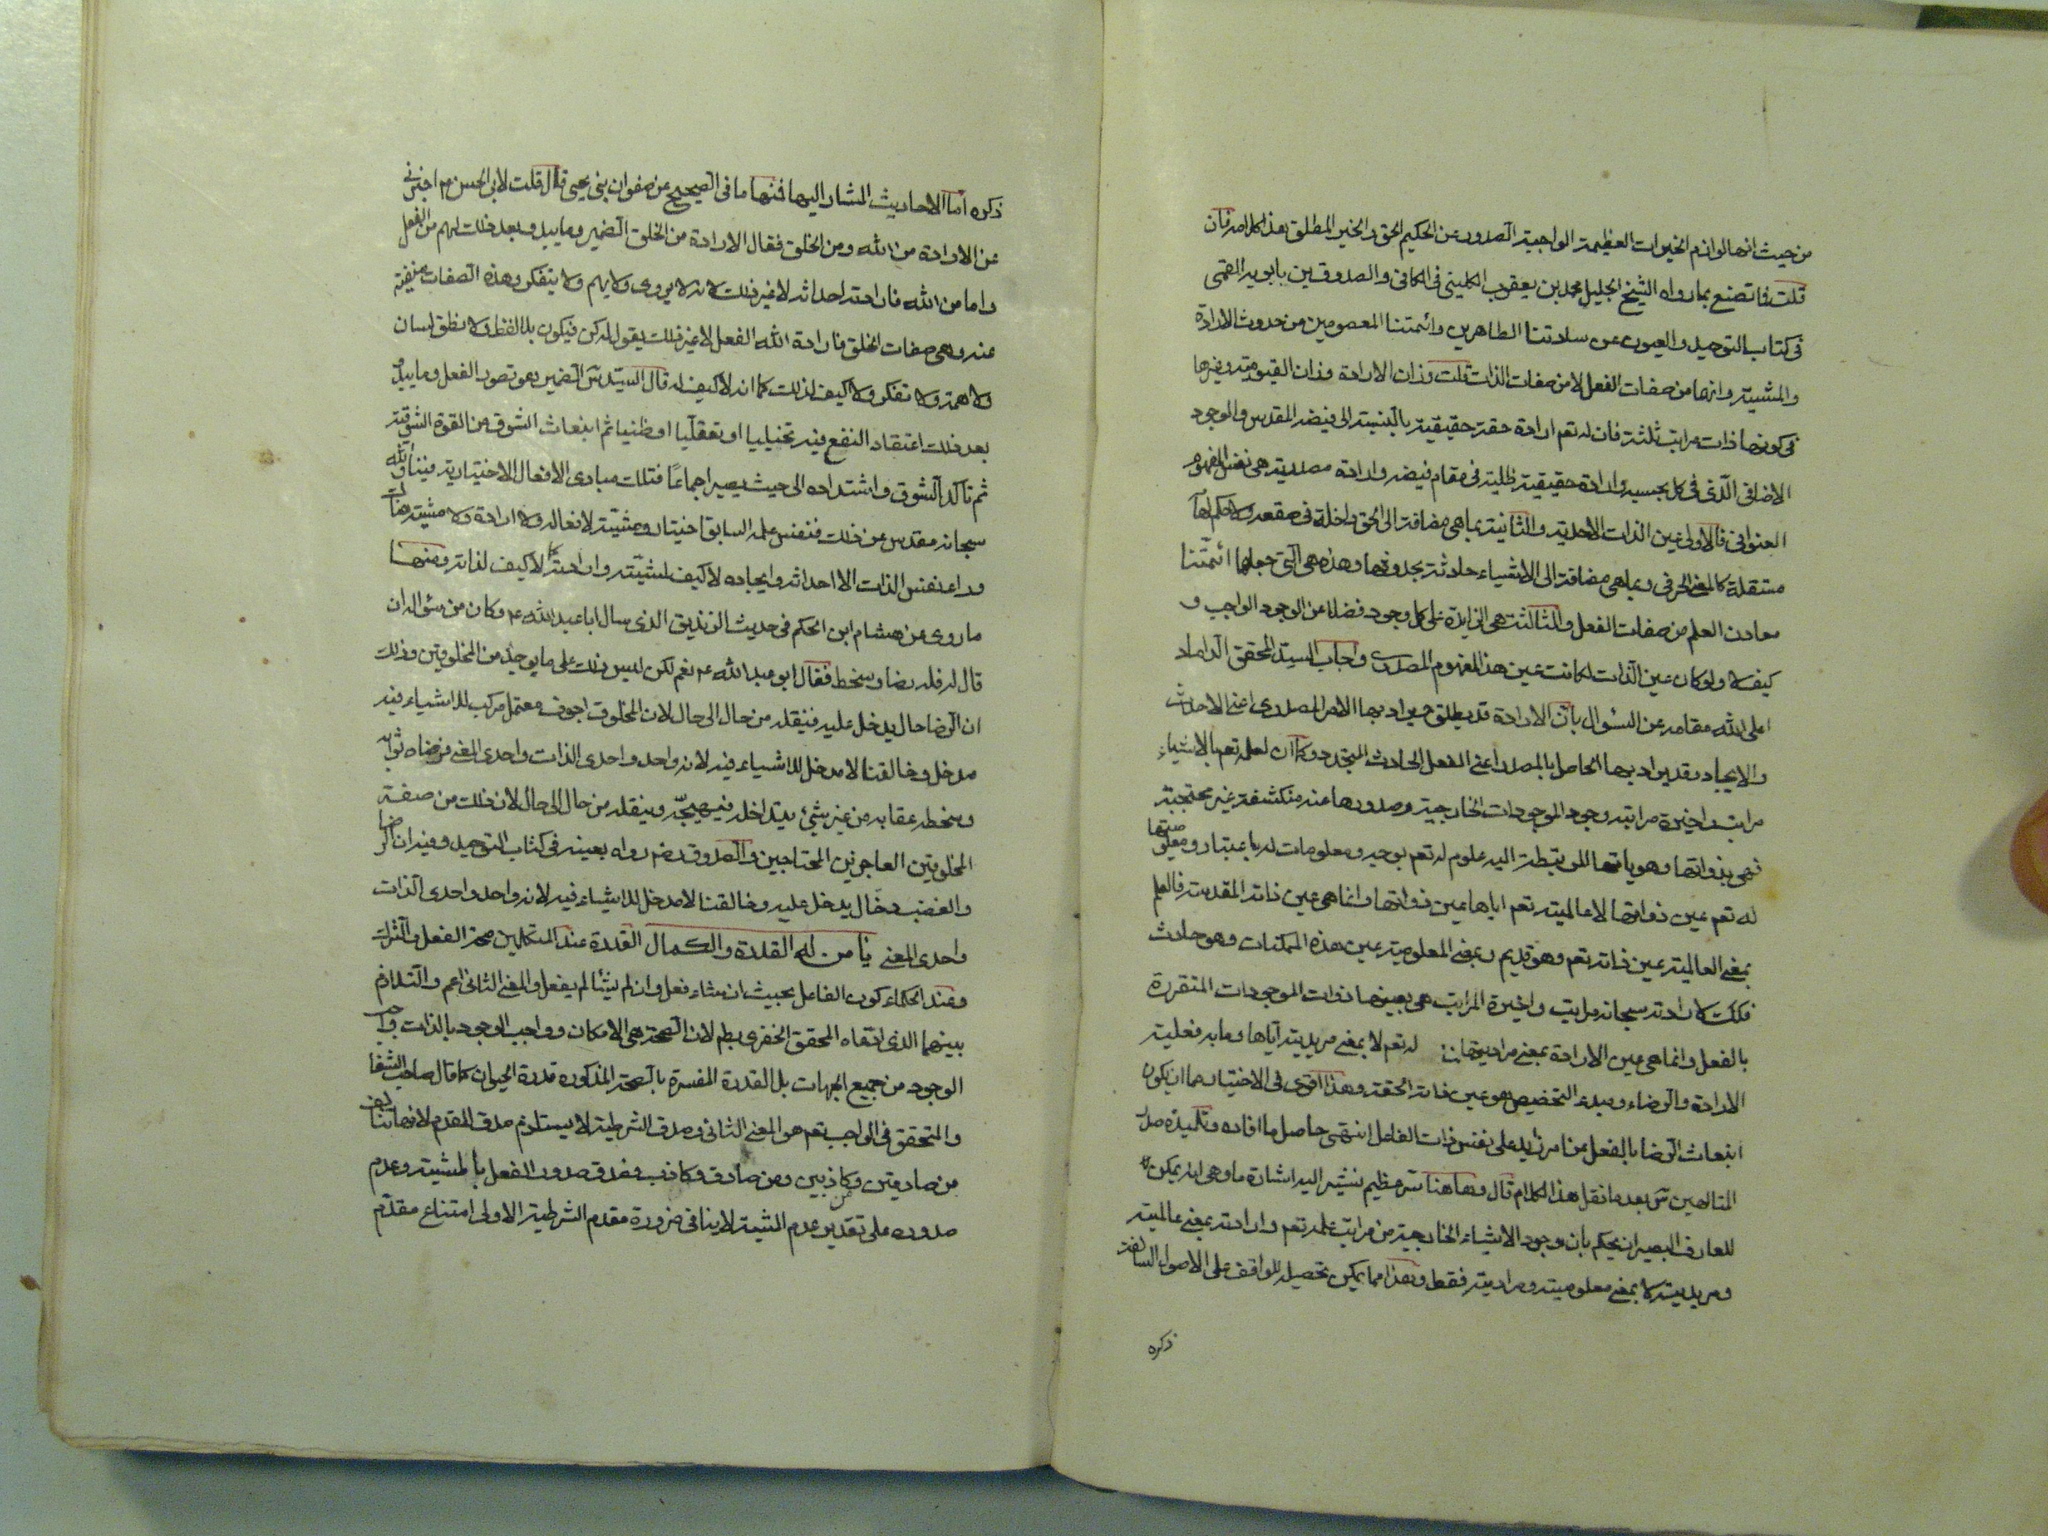 من حيث انها لوازم الخيرات العظيمة الواجبة الصدور عن الحكيم الحق والخير المطلق هذا كلامه فان
قلت فما تصنع بما رواه الشيخ الجليل محمد بن يعقوب الكليني في الكافي والصدوق بن بابويه القمي
في كتاب التوحيد والعيون عن سادتنا الطاهرين وائمتنا المعصومين من حدوث الارادة
والمشية وانها من صفات الفعل لا من صفات الذات قلت وزان الارادة وزان القيومية وغيرها
في كونها ذات مراتب ثلثة فان له تعم ارادة حقة حقيقية بالنسبة الى فيضه المقدس والوجود
الاضافي الذي في كل بحسبه وارادة حقيقية ظلية في مقام فيضه وارادة مصدرية هي نفس المفهوم
العنواني فالاولى عين الذات الاحدية والثانية بما هي مضافة الى الحق داخلة في صقعه ولا حكم لها
مستقلة كالمعنى الحرفي وبما هي مضافة الى الاشياء حادثة بحدوثها وهذه هي التي جعلها ائمتنا
معادن العلم من صفات الفعل والثالثة هي الزايدة على كل وجود فضلا عن الوجود الواجب و
كيف لا ولو كان عين الذات لكانت عين هذا المفهوم المصدري واجاب السيد المحقق الداماد
اعلى الله مقامه عن السؤال بان الارادة قد يطلق ويراد بها الامر المصدري اعني الاحداث
والايجاد وقد يراد بها الحاصل بالمصدر اعني الفعل الحادث المتجدد وكما ان لعلمه تعم بالاشياء
مراتب واخيرة مراتبه وجود الموجودات الخارجية وصدورها عنه منكشفة غير محتجبة
فهي بذواتها وهوياتها المرتبطة اليه علوم له تعم بوجه ومعلومات له باعتبار ومعلوميتها
له تعم عين ذواتها لا عالميته تعم اياها عين ذواتها وانما هي عين ذاته المقدسة فالعلم
بمعنى العالمية عين ذاته تعم وهو قديم وبمعنى المعلومية عين هذه الممكنات وهو حادث
فكذلك لارادته سبحانه مراتب واخيرة المراتب هي بعينها ذوات الموجودات المتقررة
بالفعل وانما هي عين الارادة بمعنى مراديتها له تعم لا بمعنى مريديته اياها وما به فعلية
الارادة والرضاء ومبدء التخصيص هو عين ذاته الحقة وهذا اقوى في الاختيار مما ان يكون
انبعاث الرضا بالفعل عن امر زايد على نفس ذات الفاعل انتهى حاصل ما افاده وتلميذه صدر
المتالهين س بعد ما نقل هذا الكلام قال وهاهنا سر عظيم نشير اليه اشارة ما وهي انه يمكن
للعارف البصير ان يحكم بان وجود الاشياء الخارجية من مراتب علمه تعم وارادته بمعنى عالميته
ومريديته لا بمعنى معلوميته ومراديته فقط وهذا مما يمكن تحصيله للواقف على الاصول السالفة
ذكره
ذكره اما الاحاديث المشار اليها فمنها ما في الصحيح عن صفوان بن يحيى قال قلت لابي الحسن ع اخبرني
عن الارادة من الله ومن الخلق فقال الارادة من الخلق الضمير وما يبدو بعد ذلك لهم من الفعل
واما من الله فارادته احداثه لا غير ذلك لانه لا يروى ولا يهم ولا يتفكر وهذه الصفات منفية
عنه وهي صفات الخلق فارادة الله الفعل لا غير ذلك يقول له كن فيكون بلا لفظ ولا نطق لسان
ولا همة ولا تفكر ولا كيف لذلك كما انه لا كيف له قال السيد س الضمير هو تصور الفعل وما يبدو
بعد ذلك اعتقاد النفع فيه تخيليا او تعقليا او ظنيا ثم انبعاث الشوق من القوة الشوقية
ثم تاكد الشوق واشتداده الى حيث يصير اجماعا فتلك مبادى الافعال الاختيارية فينا والله
سبحانه مقدس عن ذلك فنفس علمه السابق اختيار ومشية لافعاله ولا ارادة ولا مشية هناك
وراء نفس الذات الا احداثه وايجاده لا كيف لمشيته وارادته كما لا كيف لذاته ومنها
ما روى عن هشام ابن الحكم في حديث الزنديق الذي سال ابا عبد الله ع وكان من سؤاله ان
قال له فله رضا وسخط فقال ابو عبد الله ع نعم لكن ليس ذلك على ما يوجد من المخلوقين وذلك
ان الرضا حال يدخل عليه فينقله من حال الى حال لان المخلوق اجوف معتمل مركب للاشياء فيه
مدخل وخالقنا لا مدخل للاشياء فيه لانه واحد واحدى الذات واحدى المعنى فرضاه ثوابه
وسخطه عقابه من غير شيء يتداخله فيهيجه وينقله من حال الى حال لان ذلك من صفة
المخلوقين العاجزين المحتاجين والصدوق رواه بعينه في كتاب التوحيد وفيه ان الرضا
والغضب دخال يدخل عليه وخالقنا لا مدخل للاشياء فيه لانه واحد واحدى الذات
واحدى المعنى يا من له القدرة والكمال القدرة عند المتكلمين صحة الفعل والترك
وعند الحكماء كون الفاعل بحيث ان شاء فعل وان لم يشا لم يفعل والمعنى الثاني اعم والتلازم
بينهما الذي ادعاه المحقق الخفري بط لان الصحة هي الامكان وواجب الوجود بالذات واجب
الوجود من جميع الجهات بل القدرة المفسرة بالصحة المذكورة قدرة الحيوان كما قال صاحب الشفا
والمتحقق في الواجب تعم هو المعنى الثاني وصدق الشرطية لا يستلزم صدق المقدم لانها تتالف
من صادقين وكاذبين ومن صادق وكاذب فصدق صدور الفعل بالمشية وعدم
صدوره على تقدير عدم المشية لا ينافي ضرورة مقدم الشرطية الاولى امتناع مقدم